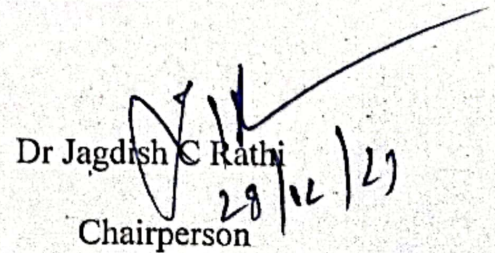 Dr Jagdish C Rathi
28/12/23
Chairperson